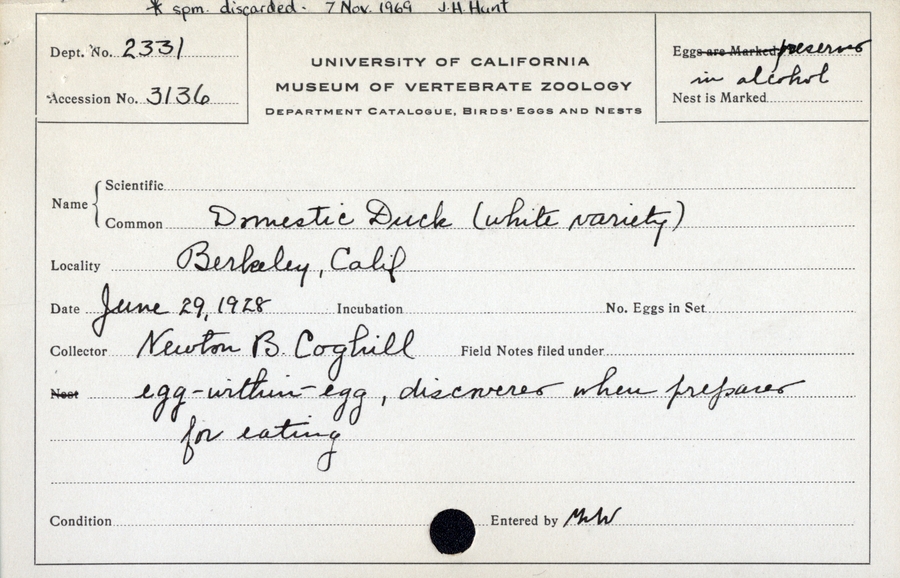 * spm. discarded. 7 Nov. 1969 J.H. Hunt
Dept. No. 2331
Accession No. 3136
UNIVERSITY OF CALIFORNIA
MUSEUM OF VERTEBRATE ZOOLOGY
DEPARTMENT CATALOGUE, BIRDS' EGGS AND NESTS
Eggs are Marked preserved
in alcohol
Nest is Marked
Name
Scientific
Common Domestic Duck (white variety)
Locality Berkeley, Calif
Date June 29, 1928 Incubation No. Eggs in Set
Collector Newton B. Coghill Field Notes filed under
Nest egg-within-egg, discovered when prepared
for eating
Condition Entered by MW